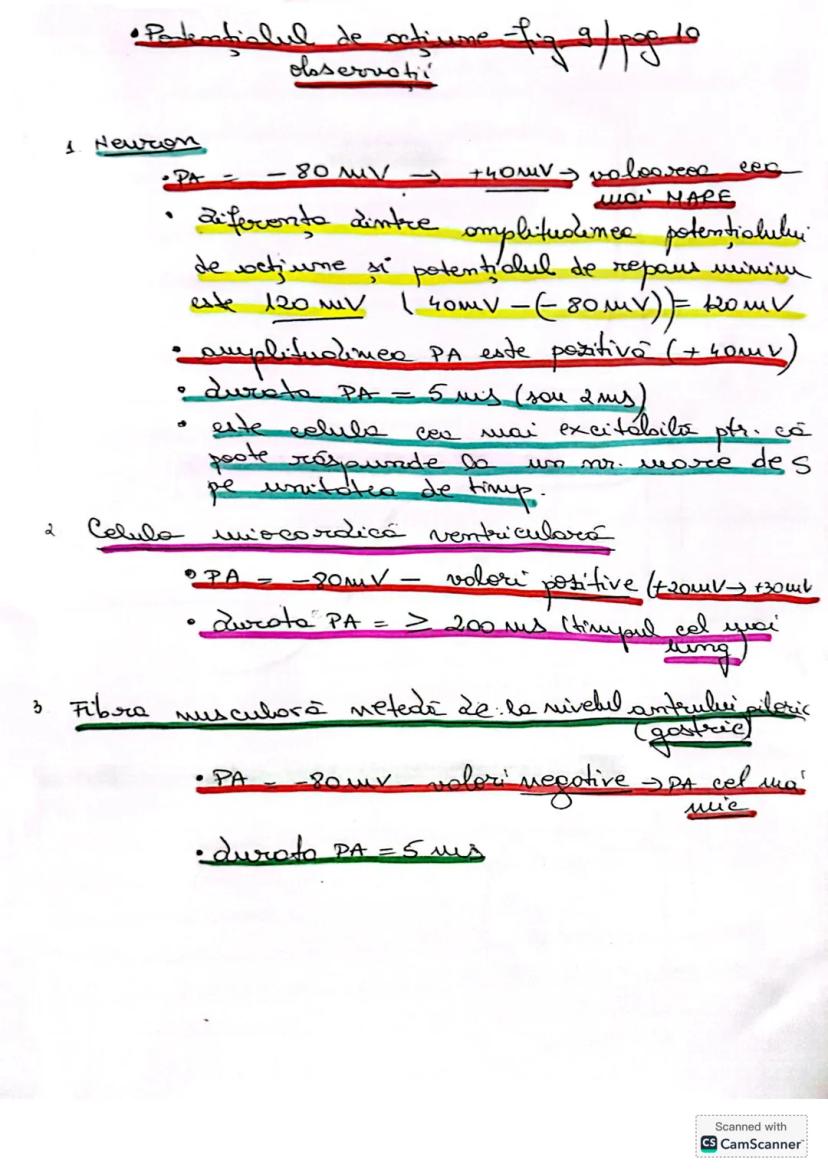 • Potențialul de acțiune - fig 9/pag 10
observații
1. Neuron
• PA = - 80 mV → +40mV → valoarea cea
mai MARE
• diferența dintre amplitudinea potențialului
de acțiune și potențialul de repaus minim
este 120 mV ( 40mV - (- 80 mV)) = 120 mV
• amplitudinea PA este pozitivă (+ 40mV)
• durata PA = 5 ms (sau 2ms)
• este celula cea mai excitabilă ptr. că
poate răspunde la un nr. mare de S
pe unitatea de timp.
2 Celula miocardică ventriculară
• PA = -80mV - valori pozitive (+20mV → +30mV
• durata PA = ≥ 200 ms (timpul cel mai
lung)
3 Fibra musculară netedă de la nivelul antrului piloric
(gastric)
• PA = -80mV - valori negative → PA cel mai
mic
• durata PA = 5 ms
Scanned with
CS CamScanner